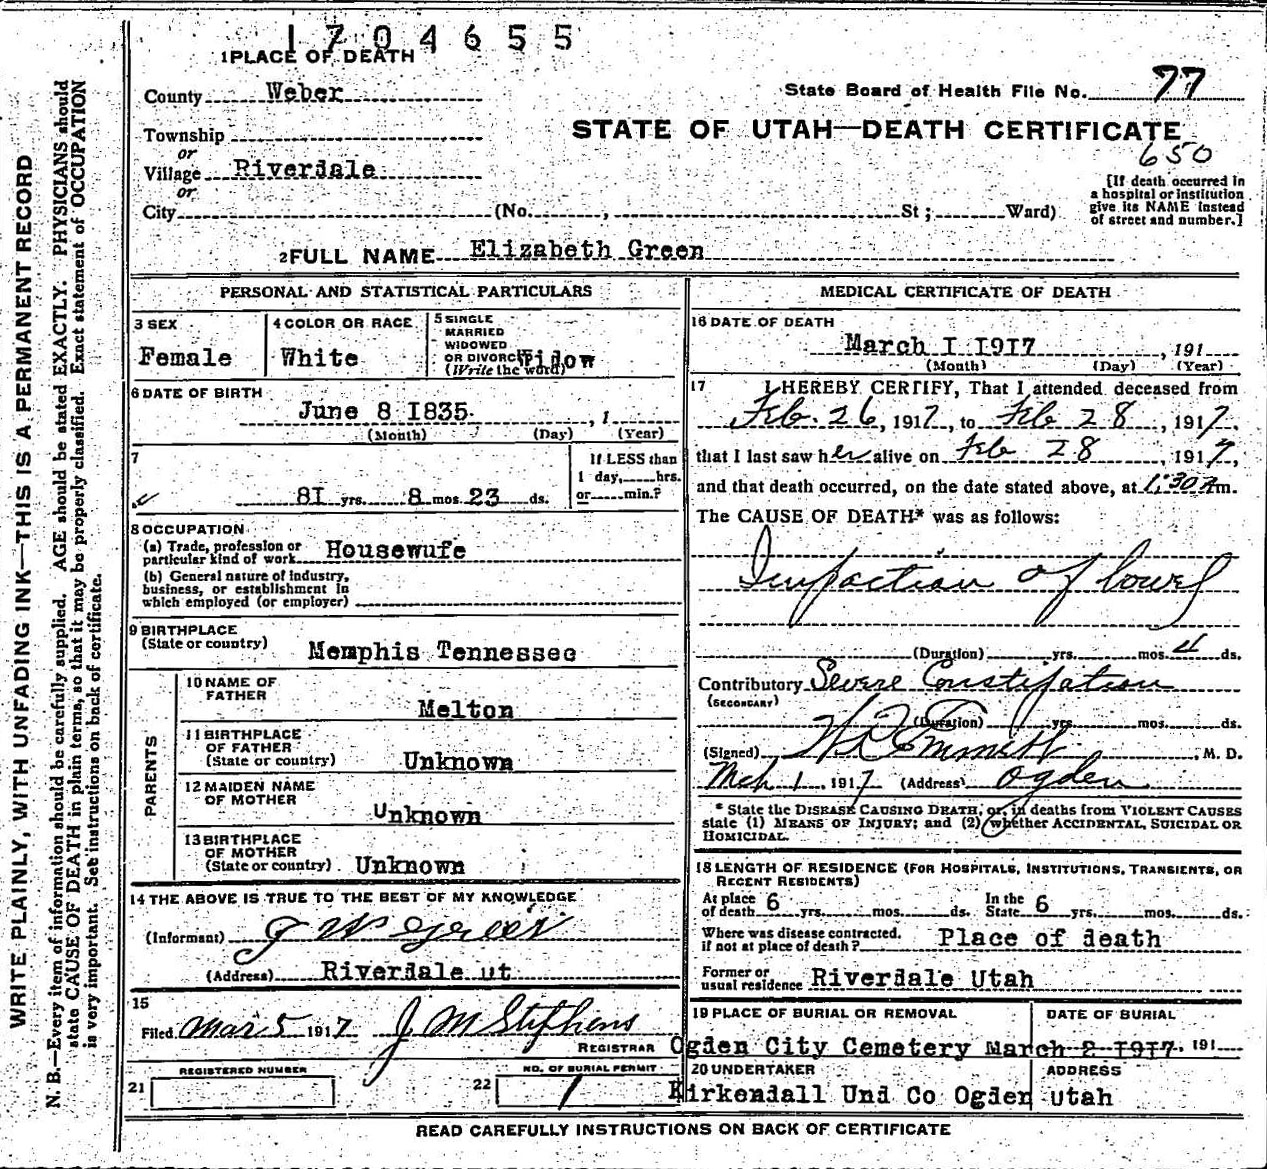 1704655
1 PLACE OF DEATH
County Weber
State Board of Health File No. 77
Township
STATE OF UTAH—DEATH CERTIFICATE
or
650
Village Riverdale
or
City (No. , St ; Ward)
[If death occurred in
a hospital or institution
give its NAME instead
of street and number.]
2 FULL NAME Elizabeth Green
PERSONAL AND STATISTICAL PARTICULARS
3 SEX
Female
4 COLOR OR RACE
White
5 SINGLE
MARRIED
WIDOWED
OR DIVORCED Widow
(Write the word)
6 DATE OF BIRTH
June 8 1835 , 1
(Month) (Day) (Year)
7
81 yrs. 8 mos. 23 ds.
If LESS than
1 day, hrs.
or min.?
8 OCCUPATION
(a) Trade, profession or
particular kind of work Housewufe
(b) General nature of industry,
business, or establishment in
which employed (or employer)
9 BIRTHPLACE
(State or country) Memphis Tennessee
PARENTS
10 NAME OF
FATHER Melton
11 BIRTHPLACE
OF FATHER
(State or country) Unknown
12 MAIDEN NAME
OF MOTHER Unknown
13 BIRTHPLACE
OF MOTHER
(State or country) Unknown
14 THE ABOVE IS TRUE TO THE BEST OF MY KNOWLEDGE
(Informant) J W Green
(Address) Riverdale ut
15
Filed Mar 5 1917 J M Stephens
REGISTRAR
21 REGISTERED NUMBER
22 NO. OF BURIAL PERMIT
1
MEDICAL CERTIFICATE OF DEATH
16 DATE OF DEATH
March 1 1917 , 191
(Month) (Day) (Year)
17 I HEREBY CERTIFY, That I attended deceased from
Feb. 26, 1917, to Feb 28, 1917.
that I last saw her alive on Feb 28, 1917,
and that death occurred, on the date stated above, at 1:30 Am.
The CAUSE OF DEATH* was as follows:
Impaction of bowel
(Duration) yrs. mos. 4 ds.
Contributory Severe Constipation
(SECONDARY)
(Duration) yrs. mos. ds.
(Signed) Emmett , M. D.
Mch 1, 1917 (Address) Ogden
* State the DISEASE CAUSING DEATH, or, in deaths from VIOLENT CAUSES
state (1) MEANS OF INJURY; and (2) whether ACCIDENTAL, SUICIDAL OR
HOMICIDAL.
18 LENGTH OF RESIDENCE (FOR HOSPITALS, INSTITUTIONS, TRANSIENTS, OR
RECENT RESIDENTS)
At place
of death 6 yrs. mos. ds.
In the
State 6 yrs. mos. ds.
Where was disease contracted.
if not at place of death? Place of death
Former or
usual residence Riverdale Utah
19 PLACE OF BURIAL OR REMOVAL
DATE OF BURIAL
Ogden City Cemetery March 2 1917. 191
20 UNDERTAKER
ADDRESS
Kirkendall Und Co Ogden utah
READ CAREFULLY INSTRUCTIONS ON BACK OF CERTIFICATE
WRITE PLAINLY, WITH UNFADING INK—THIS IS A PERMANENT RECORD
N. B.—Every item of information should be carefully supplied. AGE should be stated EXACTLY. PHYSICIANS should
state CAUSE OF DEATH in plain terms, so that it may be properly classified. Exact statement of OCCUPATION
is very important. See instructions on back of certificate.